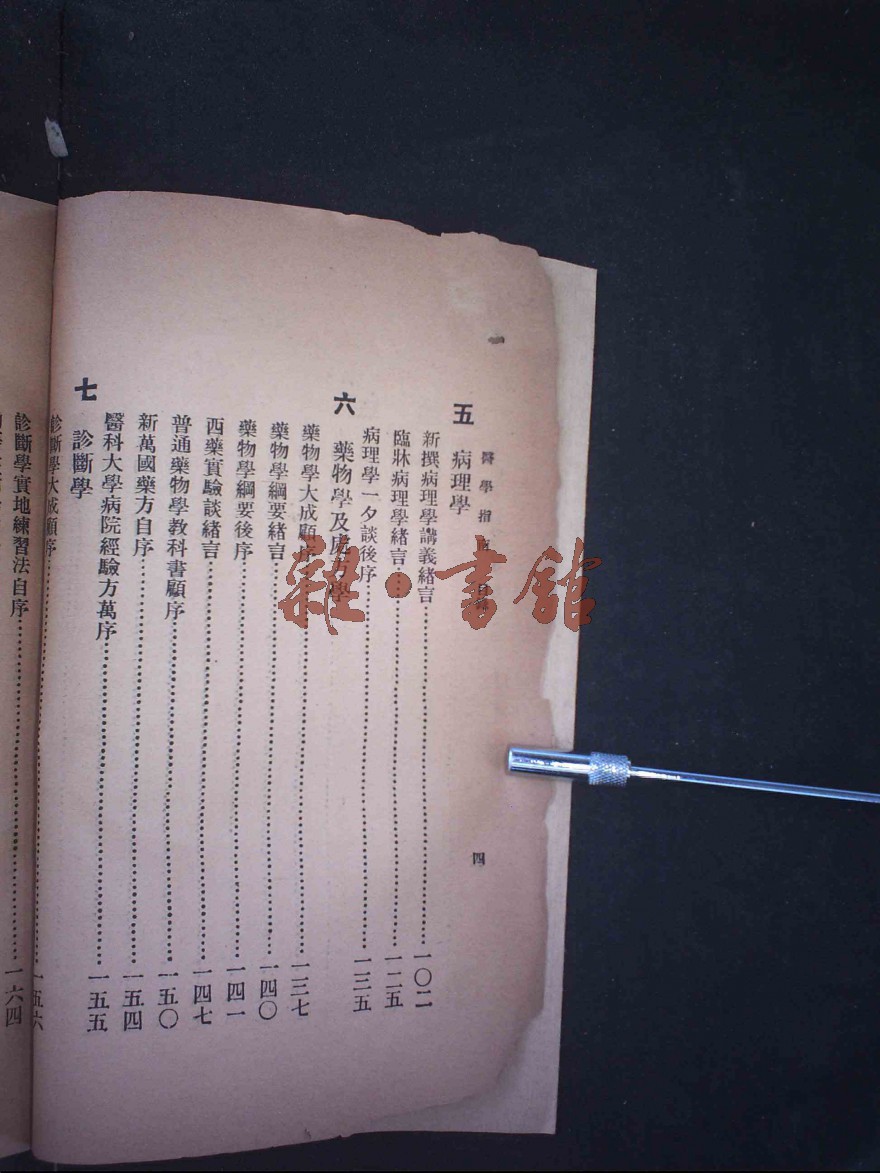 醫學指 目錄
四
五 病理學
新撰病理學講義緒言 一〇二
臨牀病理學緒言 一二五
病理學一夕談後序 一三五
六 藥物學及處方學
藥物學大成顧序 一三七
藥物學綱要緒言 一四〇
藥物學綱要後序 一四一
西藥實驗談緒言 一四七
普通藥物學教科書顧序 一五〇
新萬國藥方自序 一五四
醫科大學病院經驗方萬序 一五五
七 診斷學
診斷學大成顧序 一五六
診斷學實地練習法自序 一六四
雜·書館